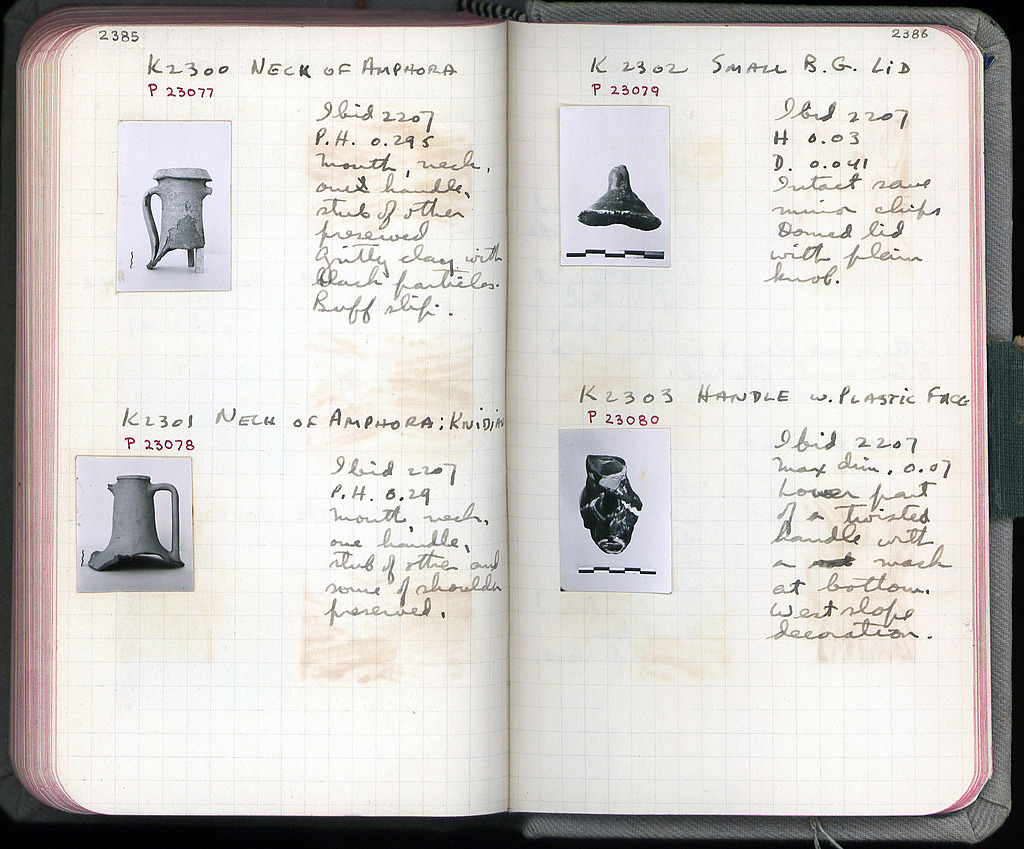 2385
K2300 NECK OF AMPHORA
P 23077
Ibid 2207
P.H. 0.295
Mouth, neck,
one handle,
stub of other
preserved
Gritty clay with
black particles.
Buff slip.
K2301 NECK OF AMPHORA: KNIDIAN
P 23078
Ibid 2207
P.H. 0.29
Mouth, neck,
one handle,
stub of other and
some of shoulder
preserved.
2386
K 2302 SMALL B.G. LID
P 23079
Ibid 2207
H 0.03
D. 0.041
Intact save
minor chips
Domed lid
with plain
knob.
K2303 HANDLE W. PLASTIC FACE
P 23080
Ibid 2207
Max dim. 0.07
Lower part
of a twisted
handle with
a mask
at bottom.
West slope
decoration.